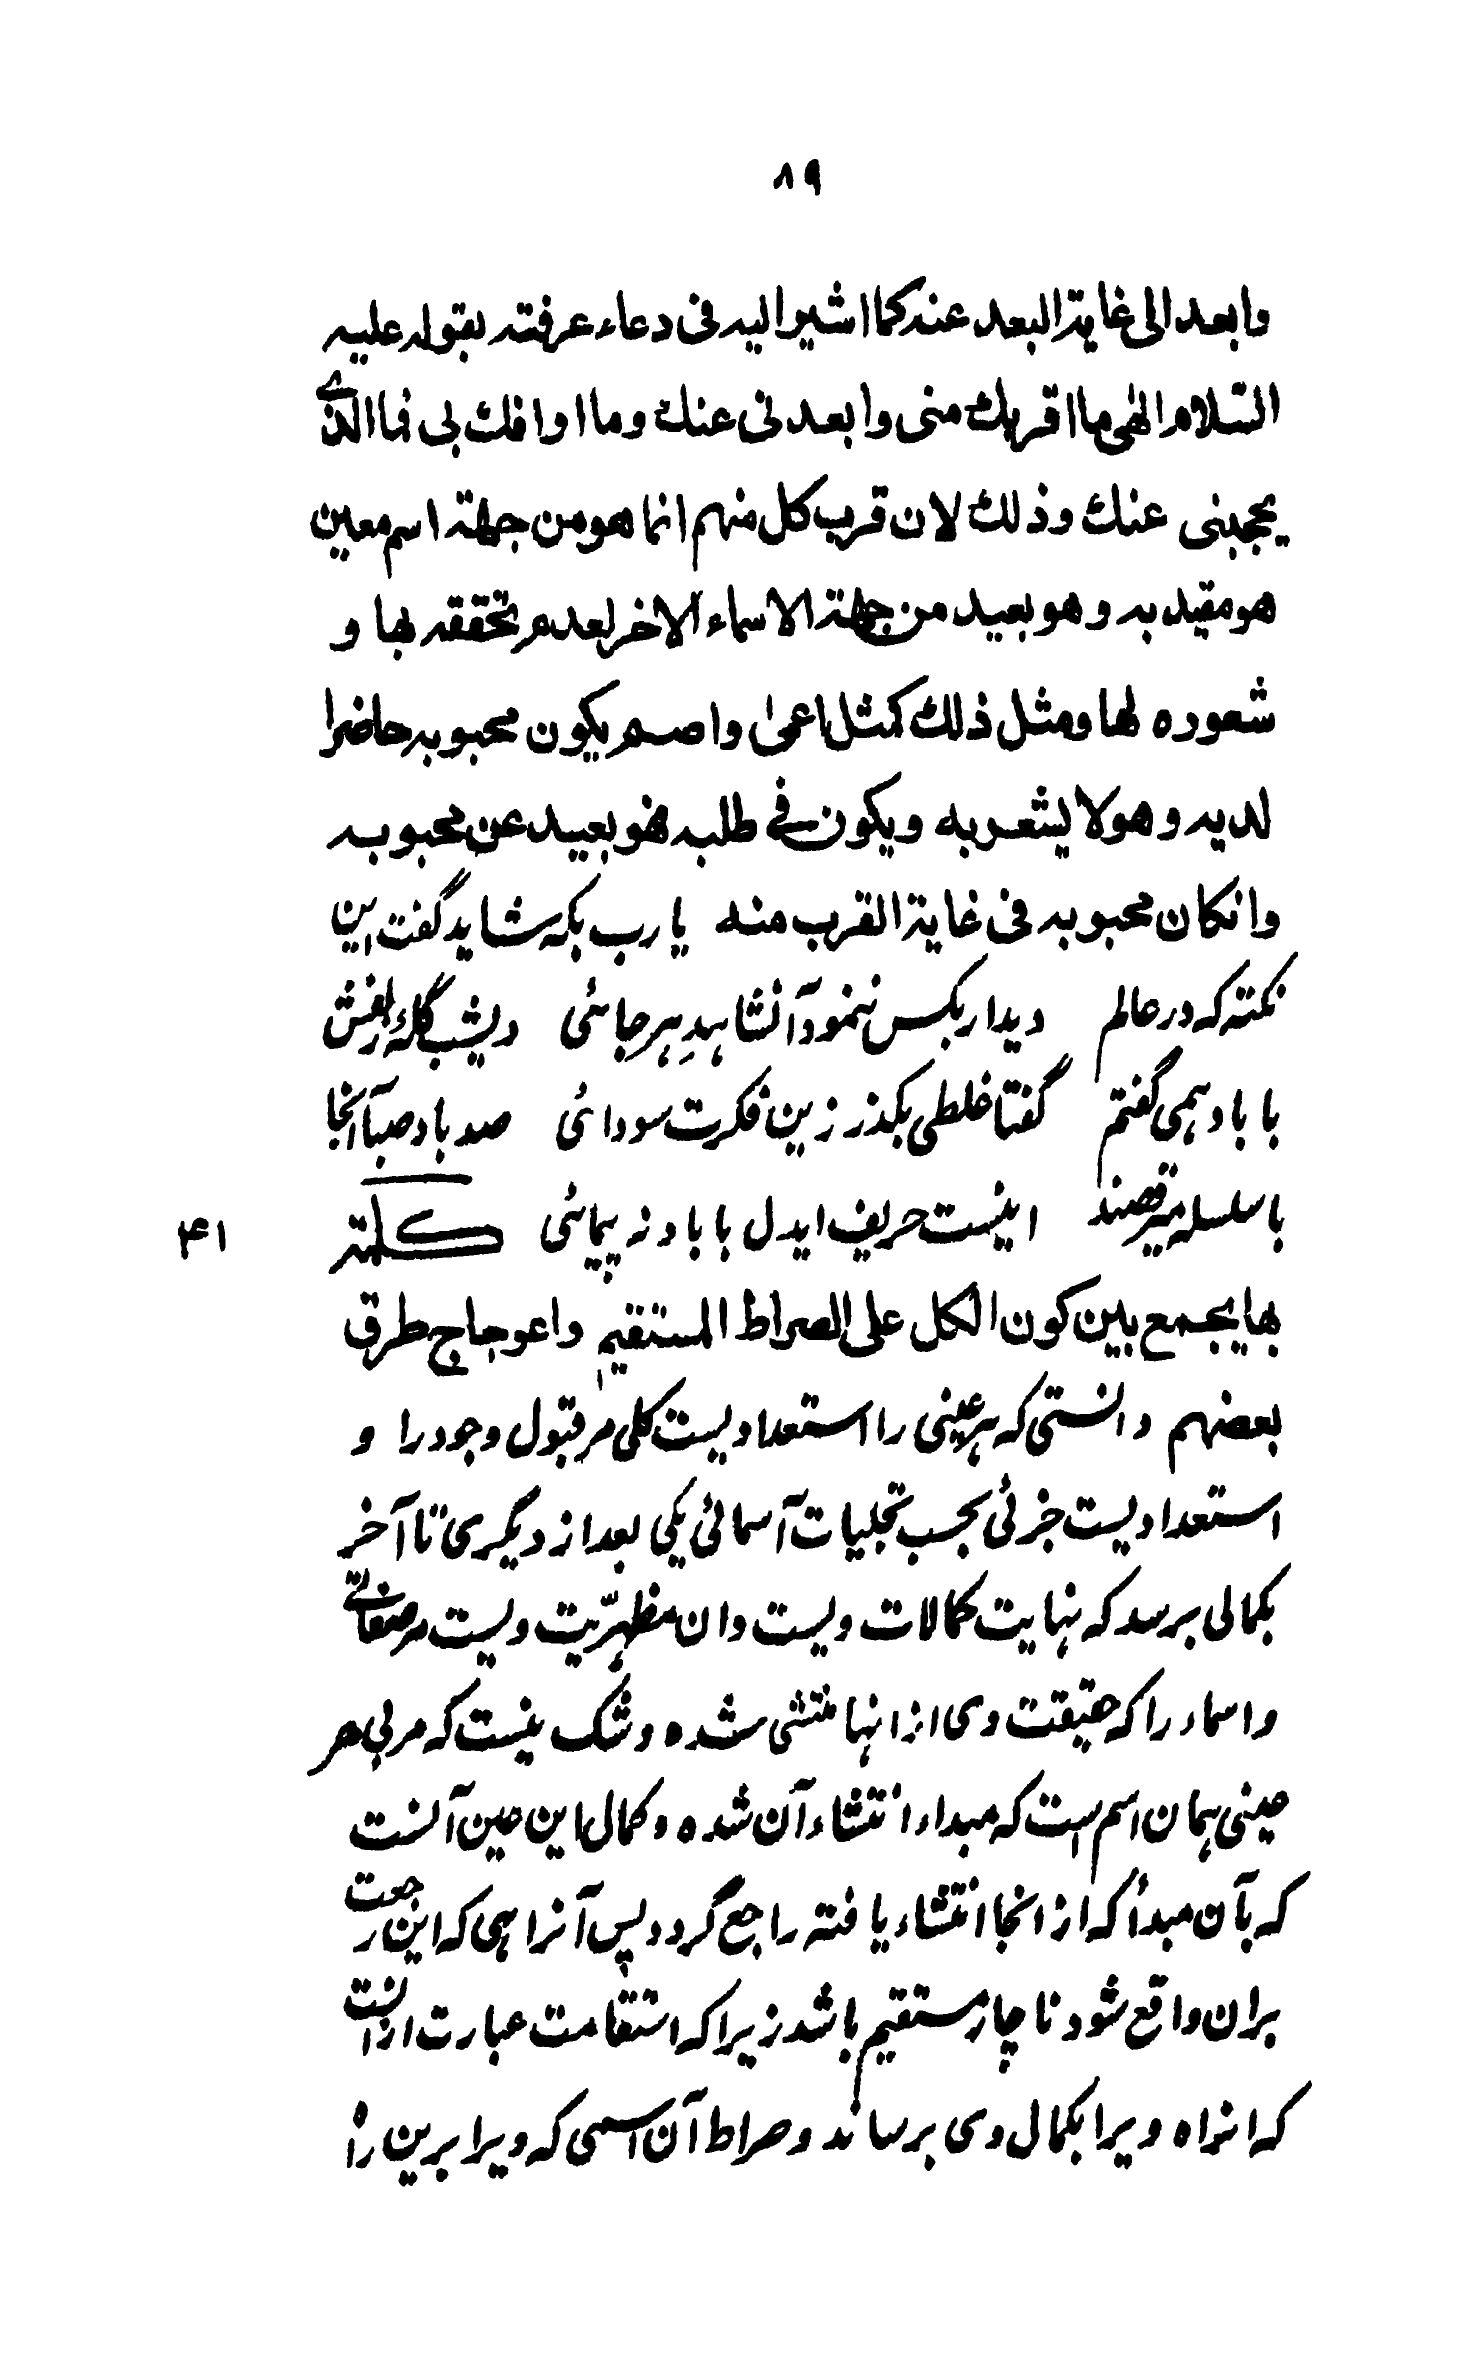 ۸۹
وابعد الی غایة البعد عنه کما اشیر الیه فی دعاء عرفته بقوله علیه
السلام الٰهی ما اقربك منی وابعدنی عنك وما اوافك بی فما الذی
یحجبنی عنك وذلك لان قرب کل منهم انما هو من جهلة اسم معین
هو مقید به وهو بعید من جهلة الاسماء الاخر لعدم تحققه بها و
شعوره لها ومثل ذلك کمثل اعمیٰ واصم یکون محبوبه حاضرا
لدیه وهو لا یشعر به ویکون فی طلبه فهو بعید عن محبوبه
وانکان محبوبه فی غایة القرب منه یا رب بکه شاید گفت این
نکته که در عالم دیدار بکس ننمود آنشاهدِ هرجائی دیشب گلهٔ زلفش
با باد همی گفتم گفتا غلطی بگذر زین فکرت سودائی صد باد صبا آنجا
با سلسله میرقصند اینست حریف ایدل با باد نه پیمائی کلمة
۴۱
بها یجمع بین کون الکل علی الصراط المستقیم واعوجاج طرق
بعضهم دانستی که هر عینی را استعدادیست کلی مر قبول وجود را و
استعدادیست جزئی بحسب تجلیات آسمائی یکی بعد از دیگری تا آخر
بکمالی برسد که نهایت کمالات ویست وان مظهرّیت ویست مر صفاتی
واسماء را که حقیقت وی از انها منتشی شده وشک نیست که مربی هر
عینی همان اسم است که مبداء انتشاء آن شده وکمال این عین آنست
که بآن مبدأ که از انجا انتشاء یافته راجع گردد پس آنراهی که این رجعت
بران واقع شود ناچار مستقیم باشد زیرا که استقامت عبارت از انست
که انراه ویرا بکمال وی برساند وصراط آن اسمی که ویرا برین راه